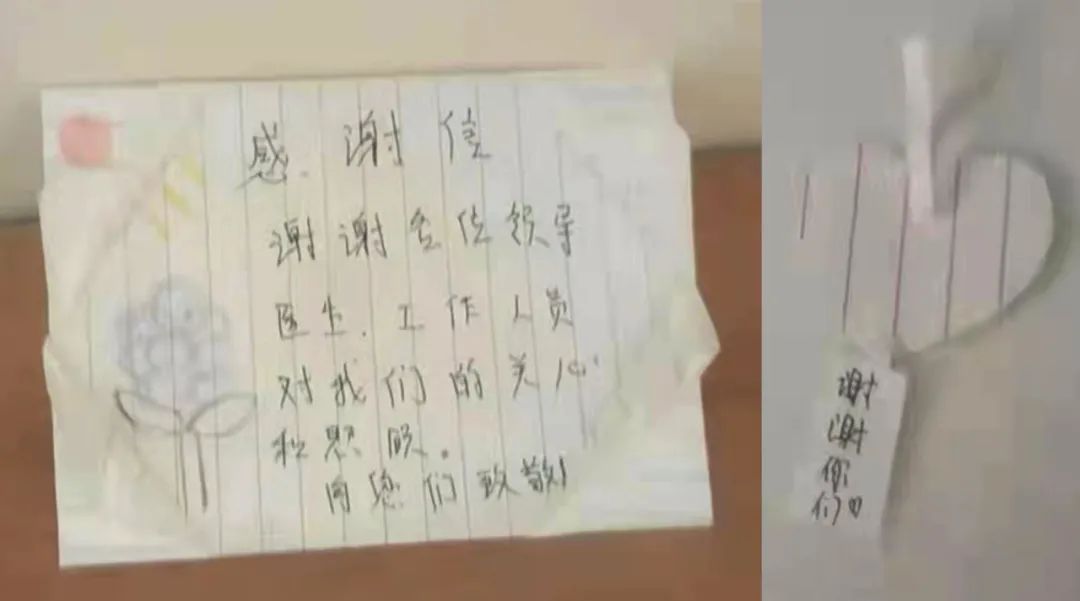 感.谢信
谢谢各位领导
医生.工作人员
对我们的关心
和照顾.
向您们致敬!
谢
谢
你
们♡